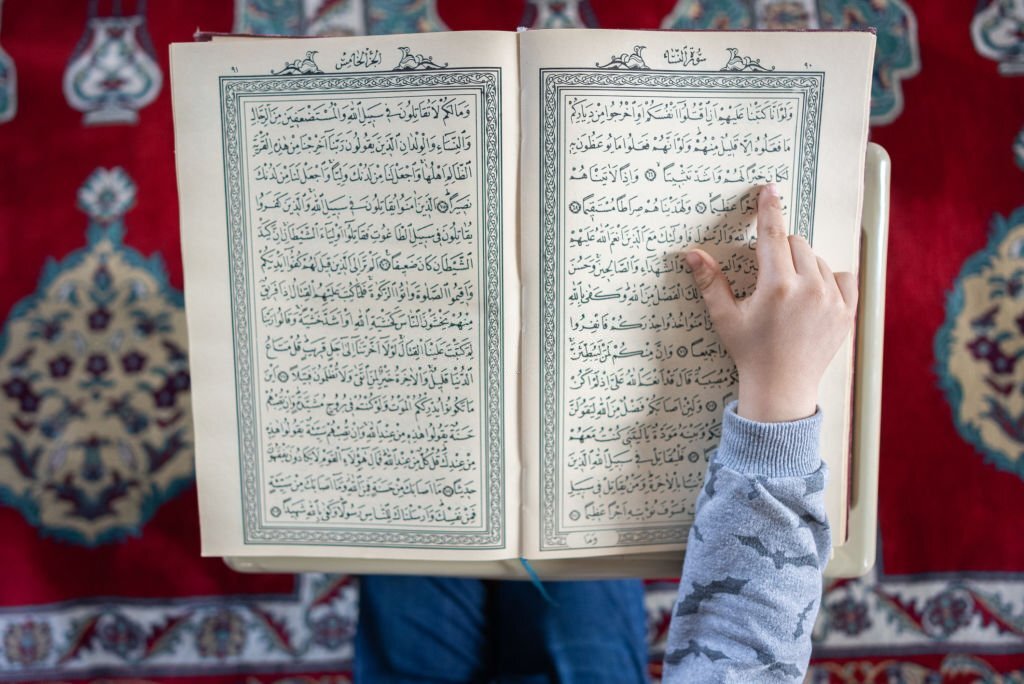 سُورَةُ النِّسَاءِ ٩٠
وَلَوْ اَنَّا كَتَبْنَا عَلَيْهِمْ اَنِ اقْتُلُٓوا اَنْفُسَكُمْ اَوِ اخْرُجُوا مِنْ دِيَارِكُمْ
مَا فَعَلُوهُ اِلَّا قَلِيلٌ مِنْهُمْ وَلَوْ اَنَّهُمْ فَعَلُوا مَا يُوعَظُونَ بِهِ
لَكَانَ خَيْرًا لَهُمْ وَاَشَدَّ تَثْبِيتًا ٦٦ وَاِذًا لَاٰتَيْنَاهُمْ
اَجْرًا عَظِيمًا ٦٧ وَلَهَدَيْنَاهُمْ صِرَاطًا مُسْتَقِيمًا ٦٨
اللّٰهَ وَالرَّسُولَ فَاُولٰٓئِكَ مَعَ الَّذِينَ اَنْعَمَ اللّٰهُ عَلَيْهِمْ
وَالشُّهَدَٓاءِ وَالصَّالِحِينَ وَحَسُنَ
الْفَضْلُ مِنَ اللّٰهِ وَكَفٰى بِاللّٰهِ
خُذُوا حِذْرَكُمْ فَانْفِرُوا
جَمِيعًا ٧١ وَاِنَّ مِنْكُمْ لَمَنْ لَيُبَطِّئَنَّ
مُصِيبَةٌ قَالَ قَدْ اَنْعَمَ اللّٰهُ عَلَيَّ اِذْ لَمْ اَكُنْ
وَلَئِنْ اَصَابَكُمْ فَضْلٌ مِنَ اللّٰهِ لَيَقُولَنَّ
وَبَيْنَهُ مَوَدَّةٌ يَا لَيْتَنِي كُنْتُ مَعَهُمْ
فَلْيُقَاتِلْ فِي سَبِيلِ اللّٰهِ الَّذِينَ
بِالْاٰخِرَةِ وَمَنْ يُقَاتِلْ فِي سَبِيلِ
فَسَوْفَ نُؤْتِيهِ اَجْرًا عَظِيمًا ٧٤
وَمَا
اَلْجُزْءُ الْخَامِسُ ٩١
وَمَا لَكُمْ لَا تُقَاتِلُونَ فِي سَبِيلِ اللّٰهِ وَالْمُسْتَضْعَفِينَ مِنَ الرِّجَالِ
وَالنِّسَٓاءِ وَالْوِلْدَانِ الَّذِينَ يَقُولُونَ رَبَّنَٓا اَخْرِجْنَا مِنْ هٰذِهِ الْقَرْيَةِ
الظَّالِمِ اَهْلُهَا وَاجْعَلْ لَنَا مِنْ لَدُنْكَ وَلِيًّا وَاجْعَلْ لَنَا مِنْ لَدُنْكَ
نَصِيرًا ٧٥ اَلَّذِينَ اٰمَنُوا يُقَاتِلُونَ فِي سَبِيلِ اللّٰهِ وَالَّذِينَ كَفَرُوا
يُقَاتِلُونَ فِي سَبِيلِ الطَّاغُوتِ فَقَاتِلُٓوا اَوْلِيَٓاءَ الشَّيْطَانِ اِنَّ كَيْدَ
الشَّيْطَانِ كَانَ ضَعِيفًا ٧٦ اَلَمْ تَرَ اِلَى الَّذِينَ قِيلَ لَهُمْ كُفُّٓوا اَيْدِيَكُمْ
وَاَقِيمُوا الصَّلٰوةَ وَاٰتُوا الزَّكٰوةَ فَلَمَّا كُتِبَ عَلَيْهِمُ الْقِتَالُ اِذَا فَرِيقٌ
مِنْهُمْ يَخْشَوْنَ النَّاسَ كَخَشْيَةِ اللّٰهِ اَوْ اَشَدَّ خَشْيَةً وَقَالُوا رَبَّنَا
لِمَ كَتَبْتَ عَلَيْنَا الْقِتَالَ لَوْلَٓا اَخَّرْتَنَٓا اِلٰٓى اَجَلٍ قَرِيبٍ قُلْ مَتَاعُ
الدُّنْيَا قَلِيلٌ وَالْاٰخِرَةُ خَيْرٌ لِمَنِ اتَّقٰى وَلَا تُظْلَمُونَ فَتِيلًا ٧٧ اَيْنَ
مَا تَكُونُوا يُدْرِكْكُمُ الْمَوْتُ وَلَوْ كُنْتُمْ فِي بُرُوجٍ مُشَيَّدَةٍ وَاِنْ تُصِبْهُمْ
حَسَنَةٌ يَقُولُوا هٰذِهِ مِنْ عِنْدِ اللّٰهِ وَاِنْ تُصِبْهُمْ سَيِّئَةٌ يَقُولُوا هٰذِهِ
مِنْ عِنْدِكَ قُلْ كُلٌّ مِنْ عِنْدِ اللّٰهِ فَمَالِ هٰٓؤُلَٓاءِ الْقَوْمِ لَا يَكَادُونَ يَفْقَهُونَ
حَدِيثًا ٧٨ مَٓا اَصَابَكَ مِنْ حَسَنَةٍ فَمِنَ اللّٰهِ وَمَٓا اَصَابَكَ مِنْ سَيِّئَةٍ
فَمِنْ نَفْسِكَ وَاَرْسَلْنَاكَ لِلنَّاسِ رَسُولًا وَكَفٰى بِاللّٰهِ شَهِيدًا ٧٩